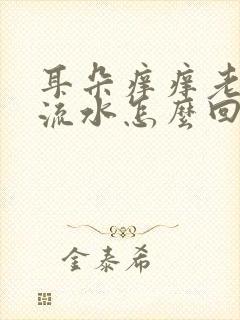 耳朵痒痒老
流水怎麽回
金泰希